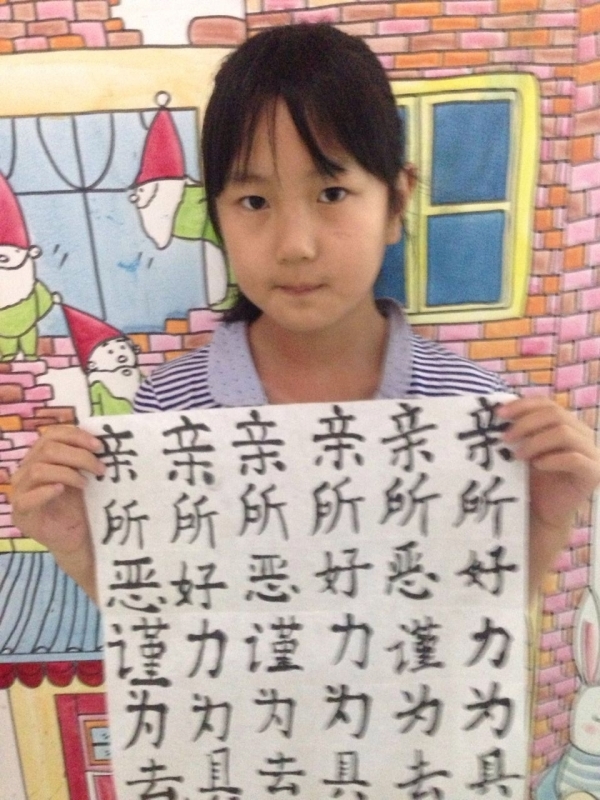 亲所好力为具
亲所恶谨为去
亲所好力为具
亲所恶谨为去
亲所好力为具
亲所恶谨为去